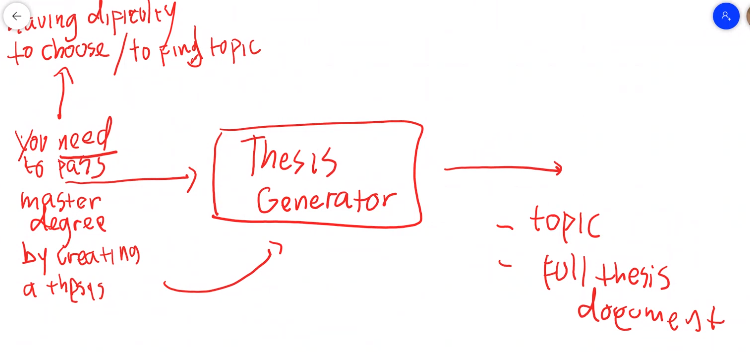 Having dificulty
to choose / to find topic
You need
to pass
master
degree
by creating
a thesis
Thesis
Generator
- topic
- full thesis
document